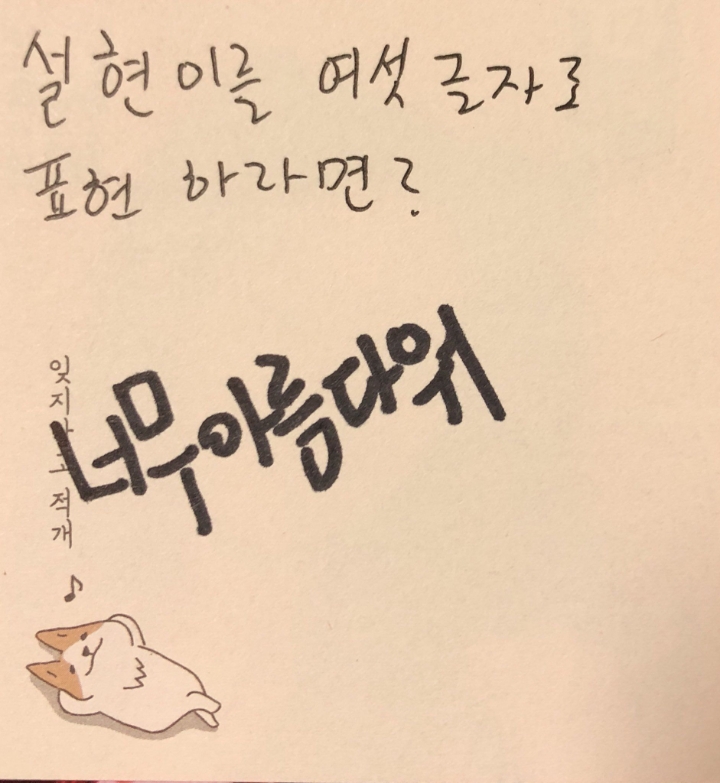 설현이를 여섯글자로
표현 하라면?
너무아름다워
잊지 적개